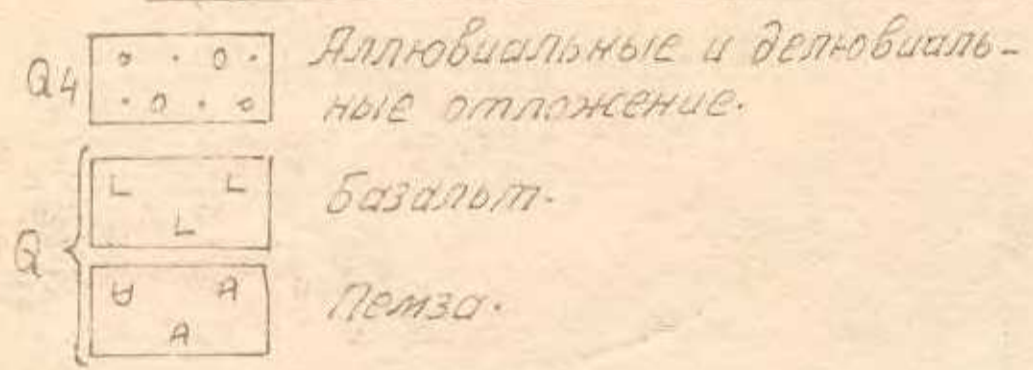 Q4 Аллювиальные и делювиаль-
ные отложение.
L L
L
Базальт.
Q
A A
A
Пемза.